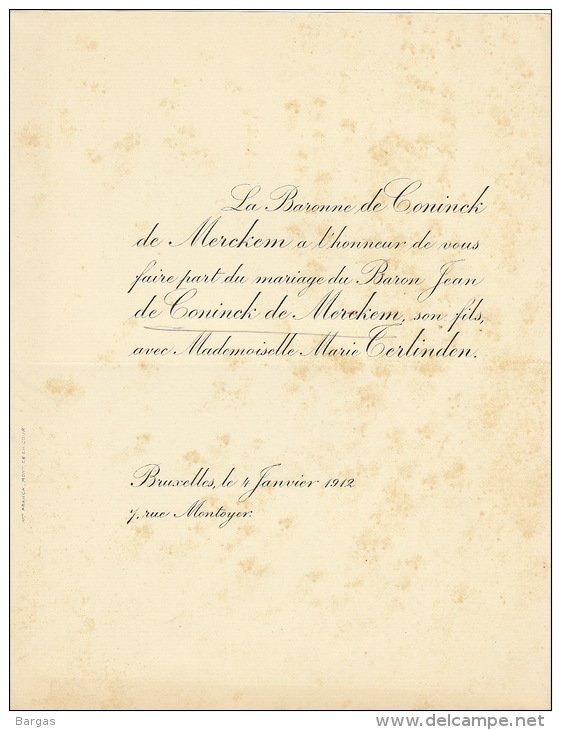 La Baronne de Coninck
de Merckem a l'honneur de vous
faire part du mariage du Baron Jean
de Coninck de Merckem, son fils,
avec Mademoiselle Marie Terlinden.
Bruxelles, le 4 Janvier 1912
7, rue Montoyer.
Bargas
www.delcampe.net